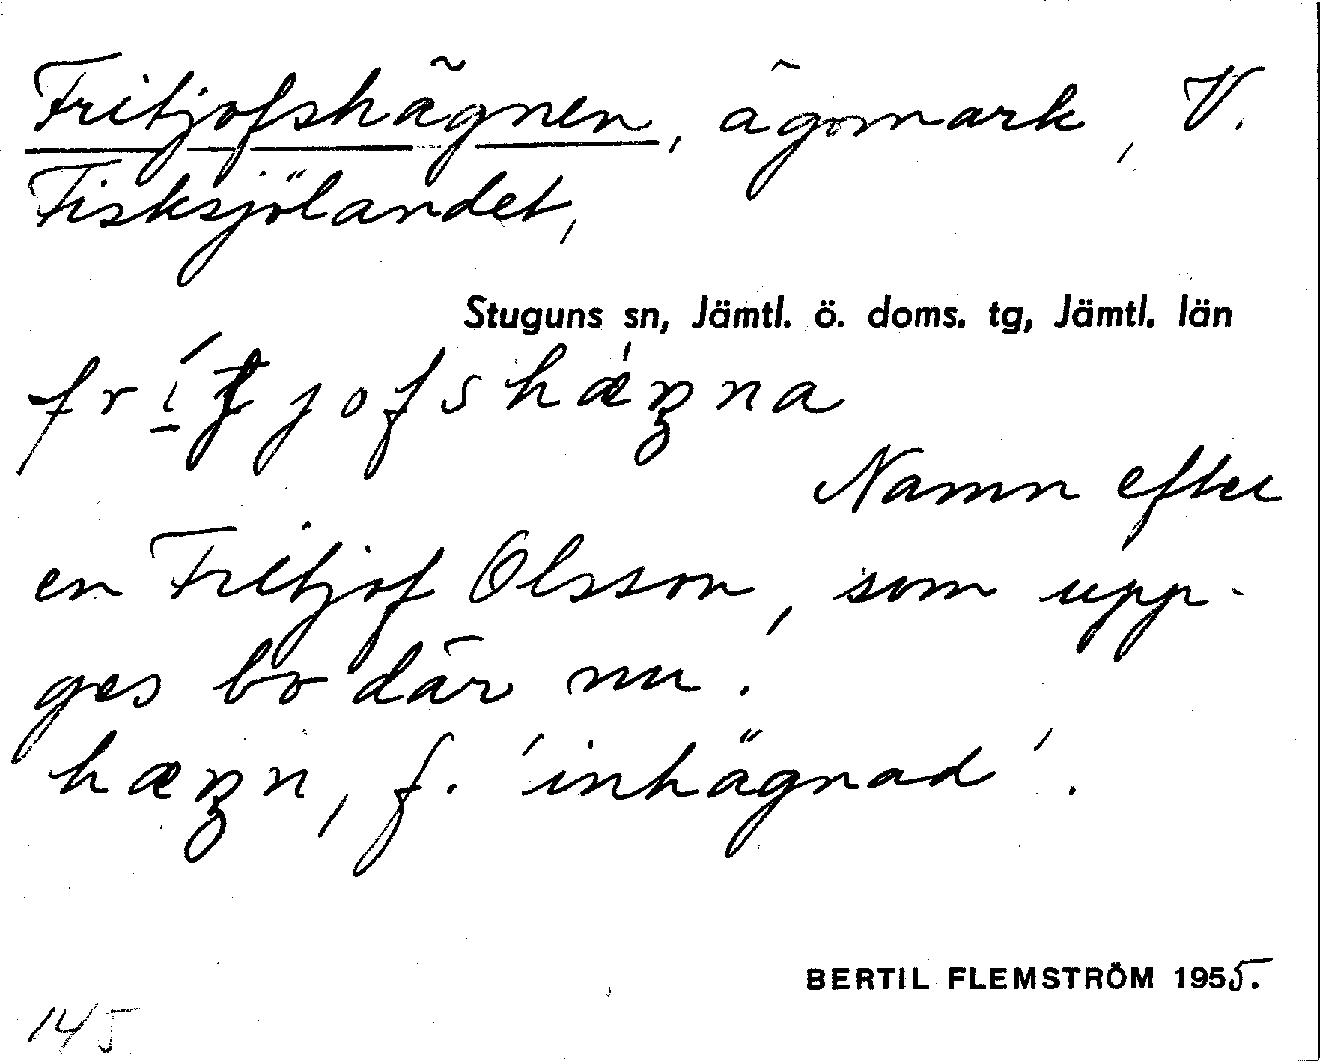 Fritjofshägnen, ägomark, V.
Fisksjölandet,
Stuguns sn, Jämtl. ö. doms. tg, Jämtl. län
frítjofshǽŋna
Namn efter
en Fritjof Olsson, som upp-
ges bo där nu.
hæŋn, f. 'inhägnad'.
BERTIL FLEMSTRÖM 1955.
145